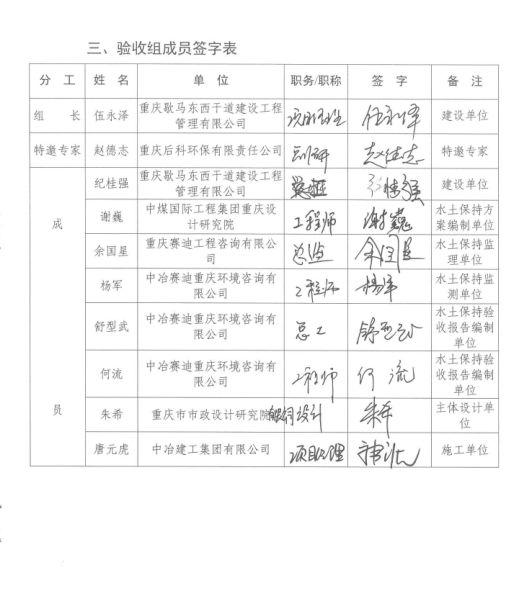 三、验收组成员签字表
分 工 姓 名 单 位 职务/职称 签 字 备 注
组 长 伍永泽 重庆歇马东西干道建设工程管理有限公司 伍永泽 建设单位
特邀专家 赵德志 重庆后科环保有限责任公司 副研 赵德志 特邀专家
成 员
纪桂强 重庆歇马东西干道建设工程管理有限公司 建设单位
谢巍 中煤国际工程集团重庆设计研究院 工程师 谢巍 水土保持方案编制单位
余国星 重庆赛迪工程咨询有限公司 总监 余国星 水土保持监理单位
杨军 中冶赛迪重庆环境咨询有限公司 工程师 杨军 水土保持监测单位
舒型武 中冶赛迪重庆环境咨询有限公司 总工 舒型武 水土保持验收报告编制单位
何流 中冶赛迪重庆环境咨询有限公司 工程师 何流 水土保持验收报告编制单位
朱希 重庆市市政设计研究院 设计 朱希 主体设计单位
唐元虎 中冶建工集团有限公司 项目经理 施工单位